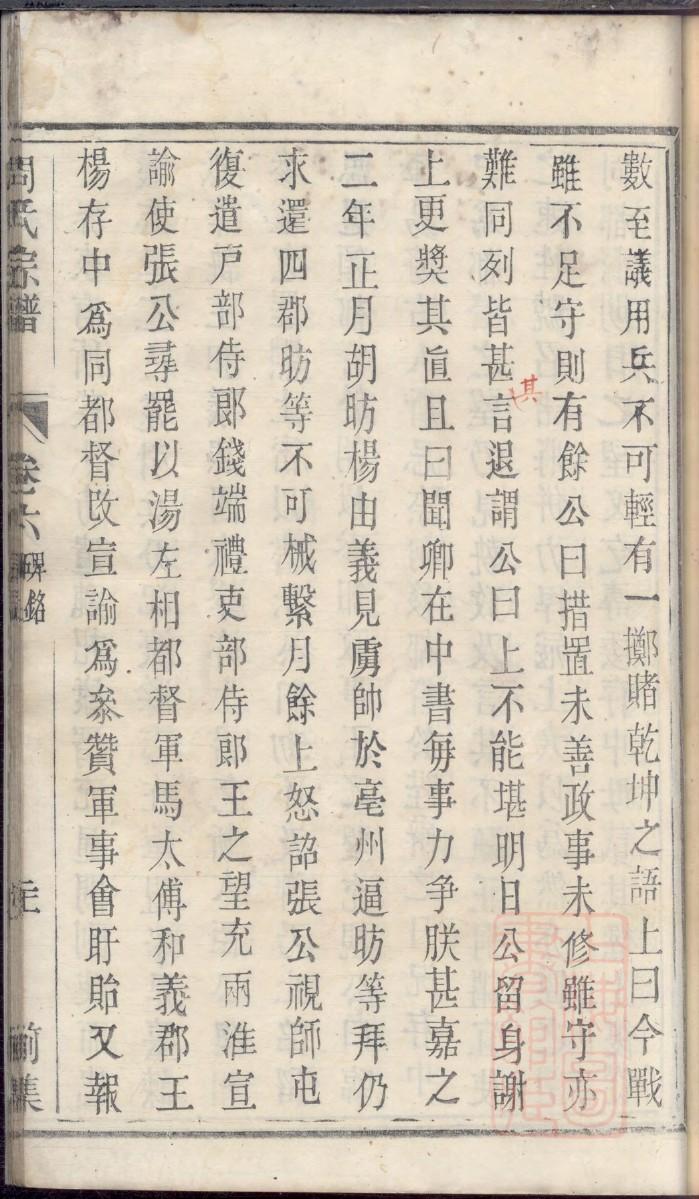 數至議用兵不可輕有一擲賭乾坤之語上曰今戰
雖不足守則有餘公曰措置未善政事未修雖守亦
難同列皆甚言退謂公曰上不能堪明日公留身謝
其
上更獎其眞且曰聞卿在中書每事力争朕甚嘉之
二年正月胡昉楊由義見虜帥於亳州逼昉等拜仍
求還四郡昉等不可械繫月餘上怒詔張公視師屯
復遣戸部侍郞錢端禮吏部侍郞王之望充兩淮宣
諭使張公尋罷以湯左相都督軍馬太傅和義郡王
楊存中爲同都督改宣諭爲叅贊軍事會盱眙又報
周氏宗譜
卷六
碑銘
前集